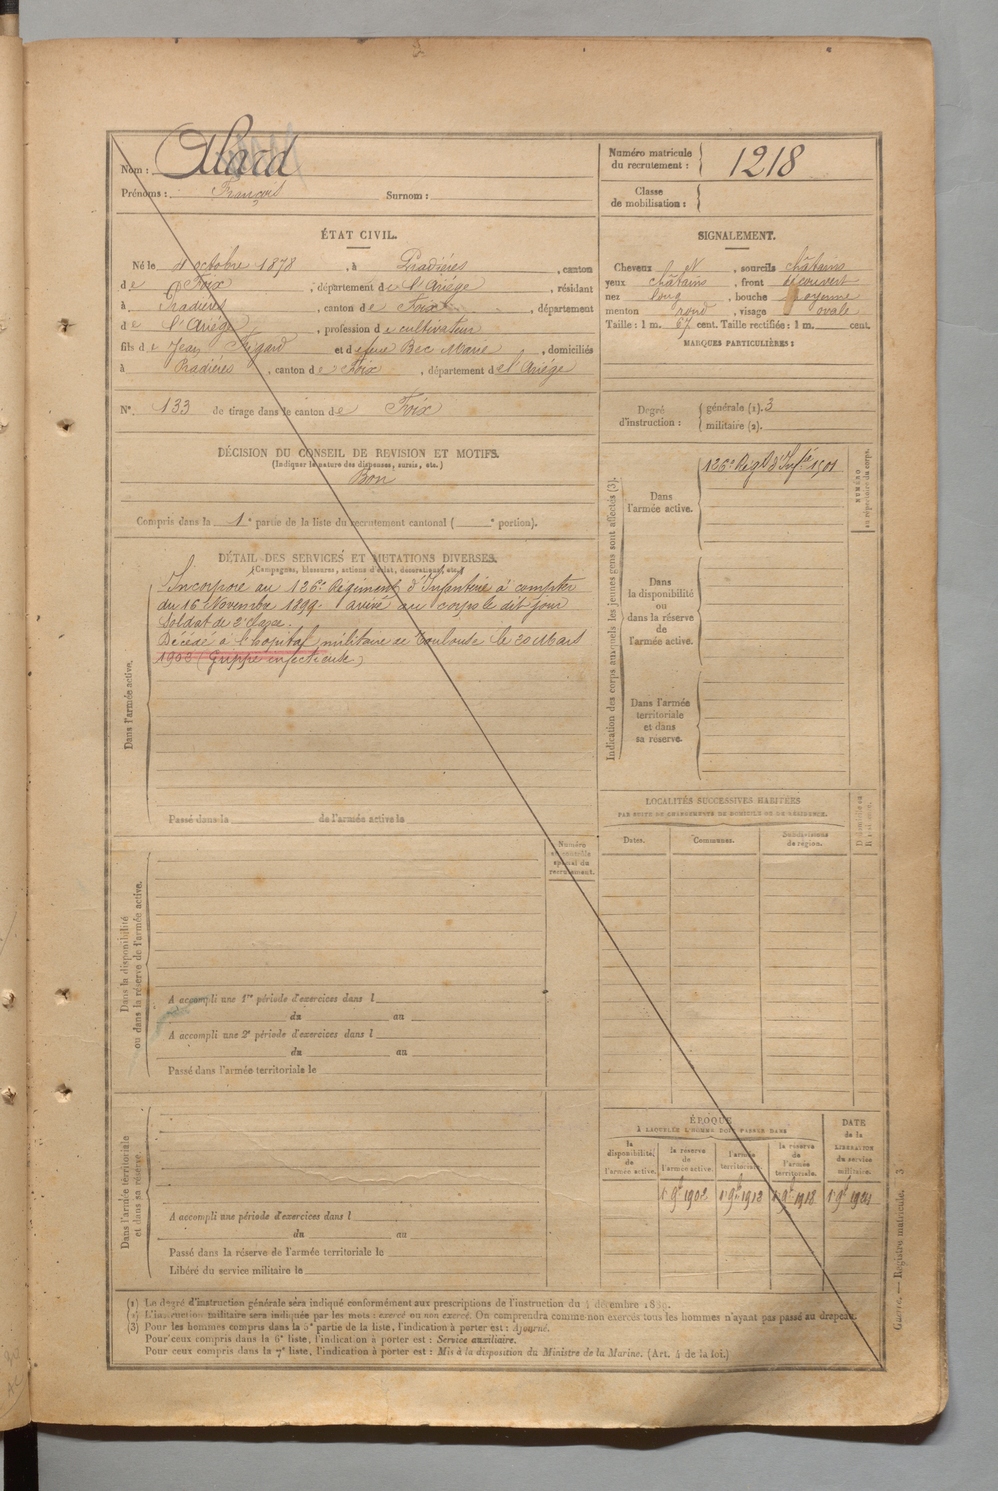 Nom : Alard
Prénoms : François Surnom :
Numéro matricule du recrutement : 1218
Classe de mobilisation :
ÉTAT CIVIL.
Né le 4 octobre 1878, à Pradières, canton
de Foix, département de l'Ariége, résidant
à Pradières, canton de Foix, département
de l'Ariége, profession de cultivateur
fils de Jean Figard et de feue Bec Marie, domiciliés
à Pradières, canton de Foix, département de l'Ariége
N° 133 de tirage dans le canton de Foix
SIGNALEMENT.
Cheveux N, sourcils châtains
yeux châtains, front découvert
nez long, bouche moyenne
menton rond, visage ovale
Taille : 1 m. 67 cent. Taille rectifiée : 1 m. cent.
MARQUES PARTICULIÈRES :
Degré d'instruction : générale (1). 3
militaire (2).
DÉCISION DU CONSEIL DE REVISION ET MOTIFS.
(Indiquer la nature des dispenses, sursis, etc.)
Bon
Compris dans la 1e partie de la liste du recrutement cantonal ( e portion).
DÉTAIL DES SERVICES ET MUTATIONS DIVERSES.
(Campagnes, blessures, actions d'éclat, décorations, etc.)
Dans l'armée active.
Incorporé au 126e Régiment d'Infanterie à compter
du 16 Novembre 1899. arrivé au corps le dit jour
Soldat de 2e classe.
Décédé à l'hopital militaire de Toulouse le 20 Mars
1903 (Grippe infectieuse)
Passé dans la de l'armée active le
Indication des corps auxquels les jeunes gens sont affectés (3).
Dans l'armée active.
126e Régt d'Infie 1,01
NUMÉRO au répertoire du corps.
Dans la disponibilité ou dans la réserve de l'armée active.
Dans l'armée territoriale et dans sa réserve.
LOCALITÉS SUCCESSIVES HABITÉES
PAR SUITE DE CHANGEMENTS DE DOMICILE OU DE RÉSIDENCE.
Dates. Communes. Subdivisions de région.
Dans la disponibilité ou dans la réserve de l'armée active.
A accompli une 1re période d'exercices dans l
du au
A accompli une 2e période d'exercices dans l
du au
Passé dans l'armée territoriale le
Dans l'armée territoriale et dans sa réserve.
A accompli une période d'exercices dans l
du au
Passé dans la réserve de l'armée territoriale le
Libéré du service militaire le
ÉPOQUE
À LAQUELLE L'HOMME DOIT PASSER DANS
la disponibilité de l'armée active.
la réserve de l'armée active.
l'armée territoriale.
la réserve de l'armée territoriale.
DATE de la LIBÉRATION du service militaire.
1er 9bre 1902
1er 9bre 1912
1er 9bre 1918
(1) Le degré d'instruction générale sera indiqué conformément aux prescriptions de l'instruction du 4 décembre 1889.
(2) L'instruction militaire sera indiquée par les mots : exercé ou non exercé. On comprendra comme non exercés tous les hommes n'ayant pas passé au drapeau.
(3) Pour les hommes compris dans la 5e partie de la liste, l'indication à porter est : Ajourné.
Pour ceux compris dans la 6e liste, l'indication à porter est : Service auxiliaire.
Pour ceux compris dans la 7e liste, l'indication à porter est : Mis à la disposition du Ministre de la Marine. (Art. 4 de la loi.)
Guerre. — Registre matricule. 3